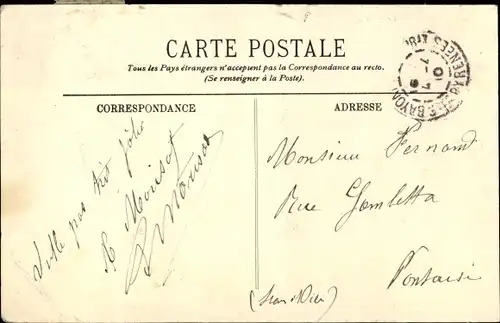 CARTE POSTALE
Tous les Pays étrangers n'acceptent pas la Correspondance au recto.
(Se renseigner à la Poste).
CORRESPONDANCE
Ville pas très jolie
R Moriset
ADRESSE
Monsieur Fernand
Rue Gambetta
Pontoise
BAYON
PYRENEES